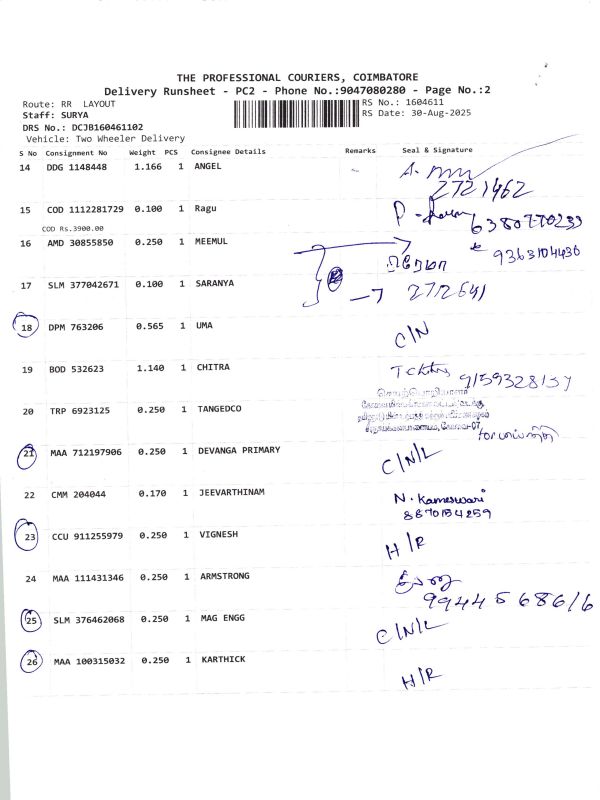 THE PROFESSIONAL COURIERS, COIMBATORE
Delivery Runsheet - PC2 - Phone No.:9047080280 - Page No.:2
Route: RR LAYOUT
RS No.: 1604611
Staff: SURYA
RS Date: 30-Aug-2025
DRS No.: DCJB160461102
Vehicle: Two Wheeler Delivery
S No Consignment No Weight PCS Consignee Details Remarks Seal & Signature
14 DDG 1148448 1.166 1 ANGEL
2721462
15 COD 1112281729 0.100 1 Ragu
6380770233
COD Rs.3900.00
16 AMD 30855850 0.250 1 MEEMUL
9363104436
பிரேமா
17 SLM 377042671 0.100 1 SARANYA 2772641
18 DPM 763206 0.565 1 UMA C/N
19 BOD 532623 1.140 1 CHITRA 9159328137
20 TRP 6923125 0.250 1 TANGEDCO
21 MAA 712197906 0.250 1 DEVANGA PRIMARY C/N/L
22 CMM 204044 0.170 1 JEEVARTHINAM N. Kameswari
8870154259
23 CCU 911255979 0.250 1 VIGNESH H/R
24 MAA 111431346 0.250 1 ARMSTRONG
9944568616
25 SLM 376462068 0.250 1 MAG ENGG C/N/L
26 MAA 100315032 0.250 1 KARTHICK H/R